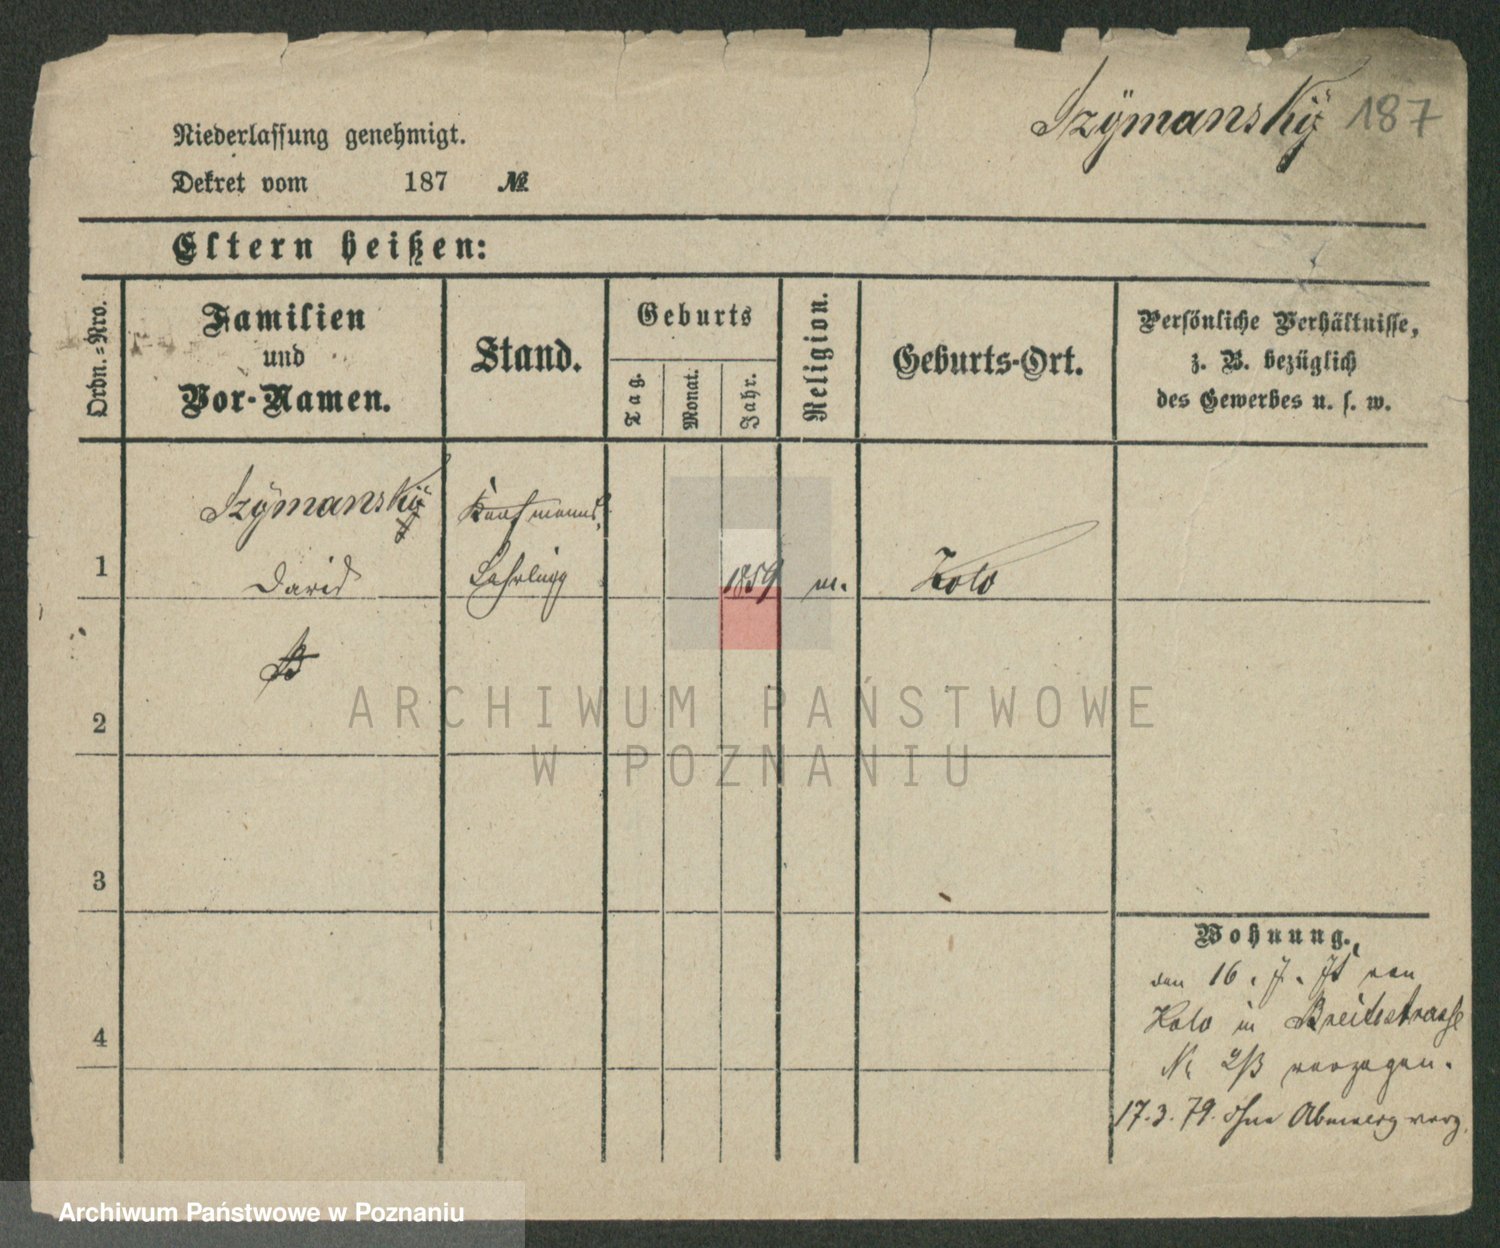 Szÿmanskÿ 187
Niederlassung genehmigt.
Dekret vom 187 №
Eltern heißen:
Ordn.-Nro.
Familien
und
Vor-Namen.
Stand.
Geburts
Tag.
Monat.
Jahr.
Religion.
Geburts-Ort.
Persönliche Verhältnisse,
z. B. bezüglich
des Gewerbes u. s. w.
Szÿmanskÿ
David
Kaufmanns
Lehrling
1
1859
m.
Kolo
2
3
4
Wohnung.
den 16. 7. von
Kolo in Breitestrasse
verzogen.
17.3.79. ohne verz.
ARCHIWUM PAŃSTWOWE
W POZNANIU
Archiwum Państwowe w Poznaniu